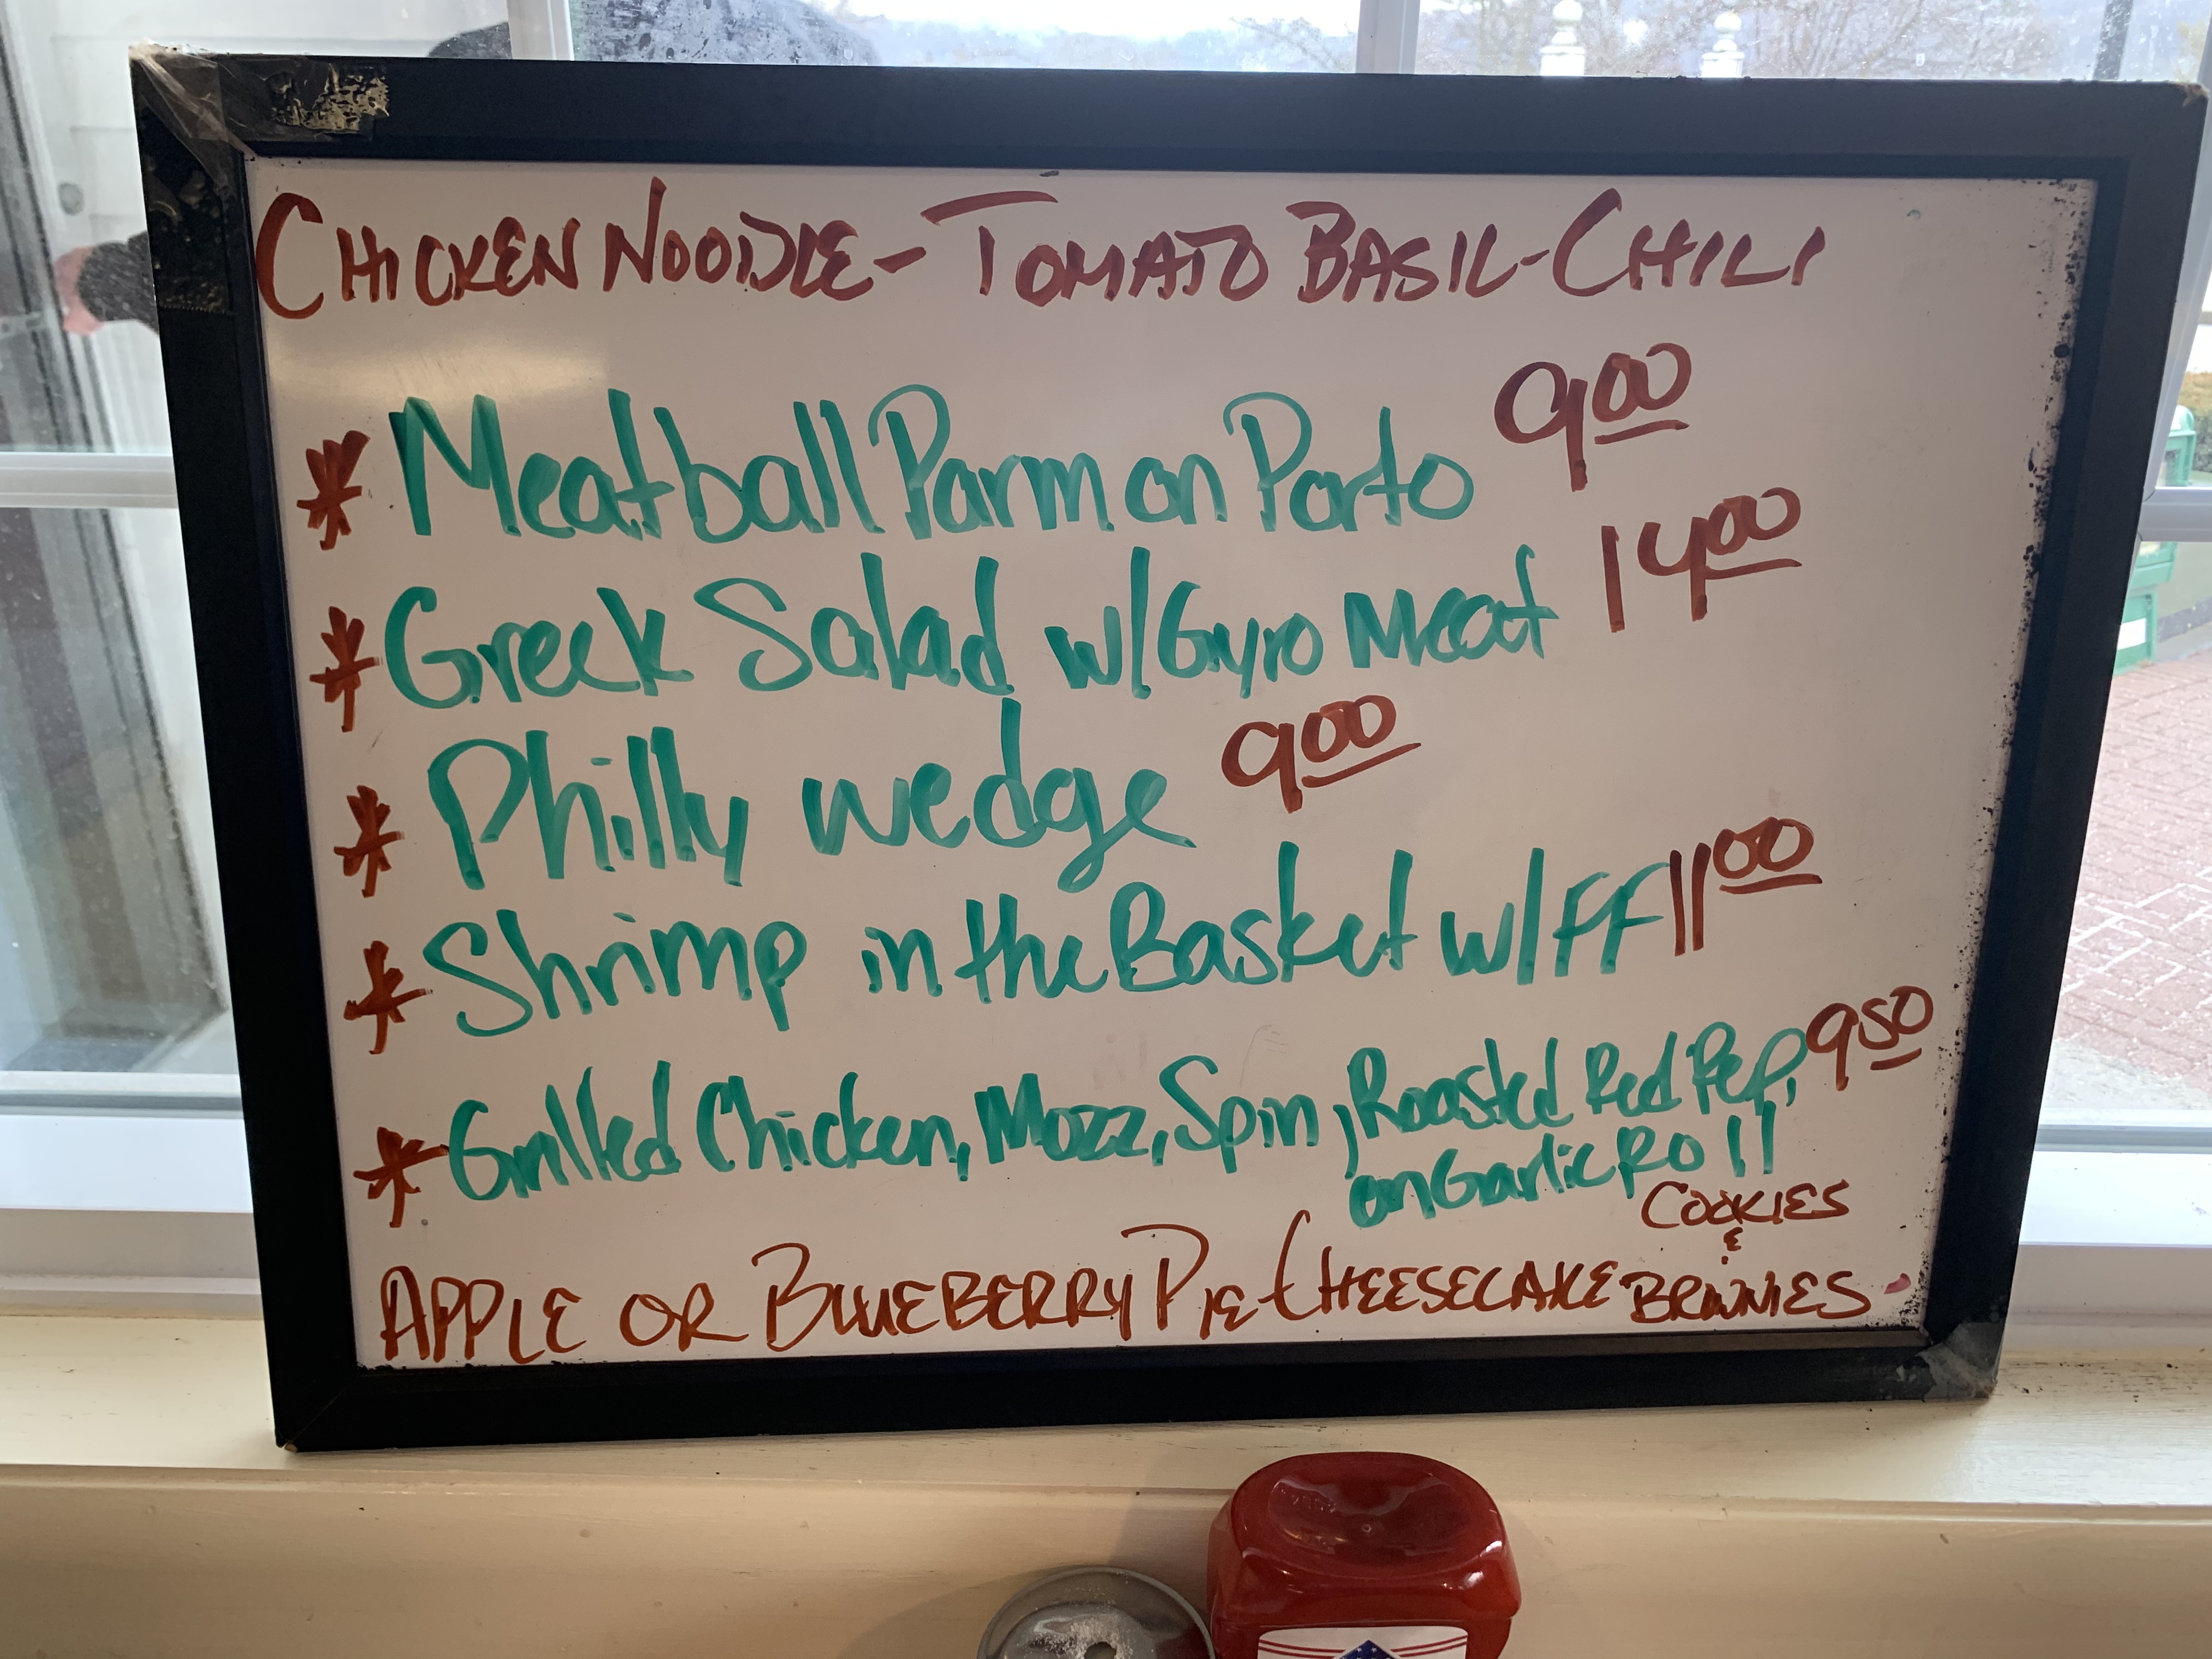 CHICKEN NOODLE - TOMATO BASIL - CHILI
* Meatball Parm on Porto 9.00
* Greek Salad w/Gyro Meat 14.00
* Philly wedge 9.00
* Shrimp in the Basket w/FF 11.00
* Grilled Chicken, Mozz, Spin, Roasted Red Pep, 9.50
on Garlic Roll
COOKIES
&
APPLE OR BLUEBERRY PIE - CHEESECAKE BROWNIES